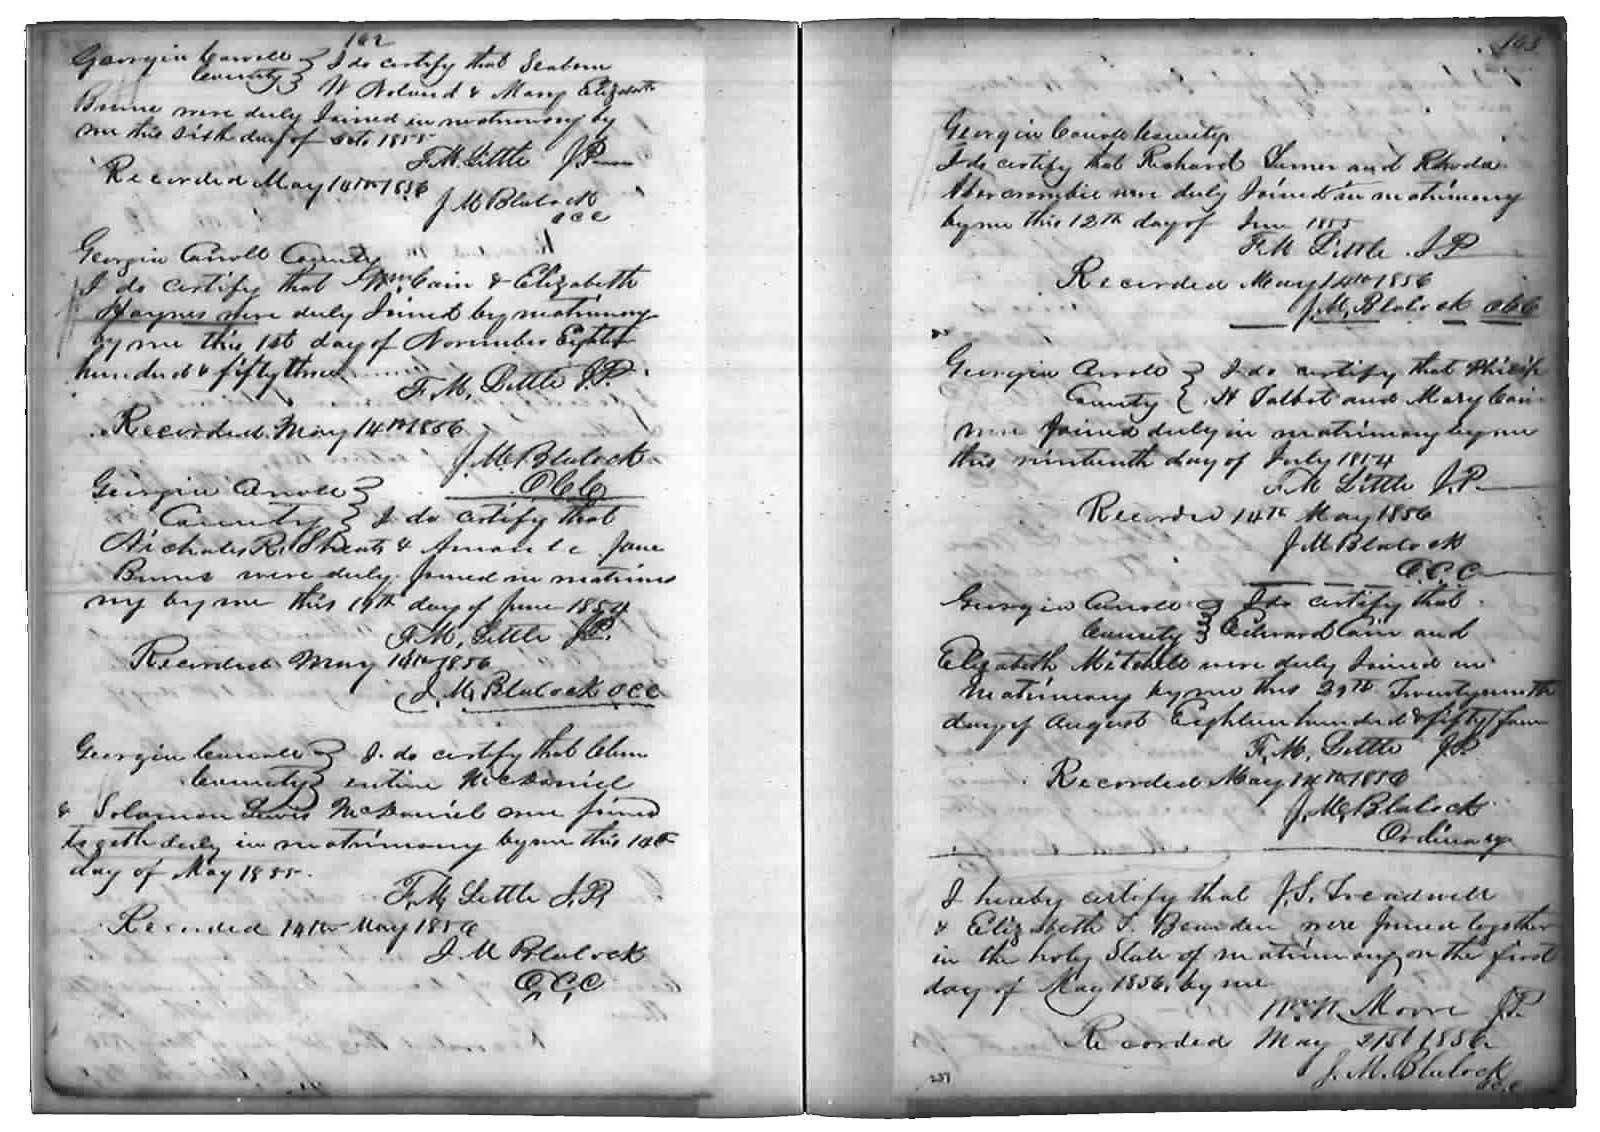 162
Georgia Carroll } I do certify that Seaborn
County } W Noland & Mary Elizabeth
were duly Joined in matrimony by
me this Sixth day of Oct 1855
F. M. Little J P
Recorded May 14th 1856
J M Blalock
O C C
Georgia Carroll County
I do certify that Wm Cain & Elizabeth
Haynes were duly Joined by matrimony
by me this 1st day of November Eighteen
hundred & fifty three
F. M. Little J. P.
Recorded May 14th 1856
J. M. Blalock
O C C
Georgia Carroll }
County } I do certify that
Nicholas R. Sheats & Jane
Burns were duly Joined in matrimo
ny by me this day of June 1854
F. M. Little J P.
Recorded May 14th 1856
J. M. Blalock O C C
Georgia Carroll } I do certify that Clem
County } entine McDaniel
& Solomon Lewis McDaniel were joined
togeth duly in matrimony by me this
day of May 1855.
F. M. Little J. P.
Recorded 14th May 1856
J. M Blalock
O. C. C
163
Georgia Carroll County
I do certify that Richard Turner and Rhoda
Abercrombie were duly Joined in matrimony
by me this 12th day of June 1855
F. M Little J. P
Recorded May 14th 1856
J. M. Blalock O C C
Georgia Carroll } I do certify that Philip
County } H Talbot and Mary Cain
were Joined duly in matrimony by me
this ninteenth day of July 1854
F. M Little J. P.
Recorded 14th May 1856
J M Blalock
O. C. C
Georgia Carroll } I do certify that
County } Edward Cain and
Elizabeth Mitchell were duly Joined in
Matrimony by me this 29th Twentyninth
day of August Eighteen hundred & fifty four
F. M. Little J P.
Recorded May 14th 1856
J. M. Blalock
Ordinary
I hereby certify that J. S. Treadwell
& Elizabeth T. Bearden were Joined together
in the holy State of matrimony on the first
day of May 1856, by me
Wm N. Moore J. P.
Recorded May 21st 1856
J. M. Blalock
O. C. C
237